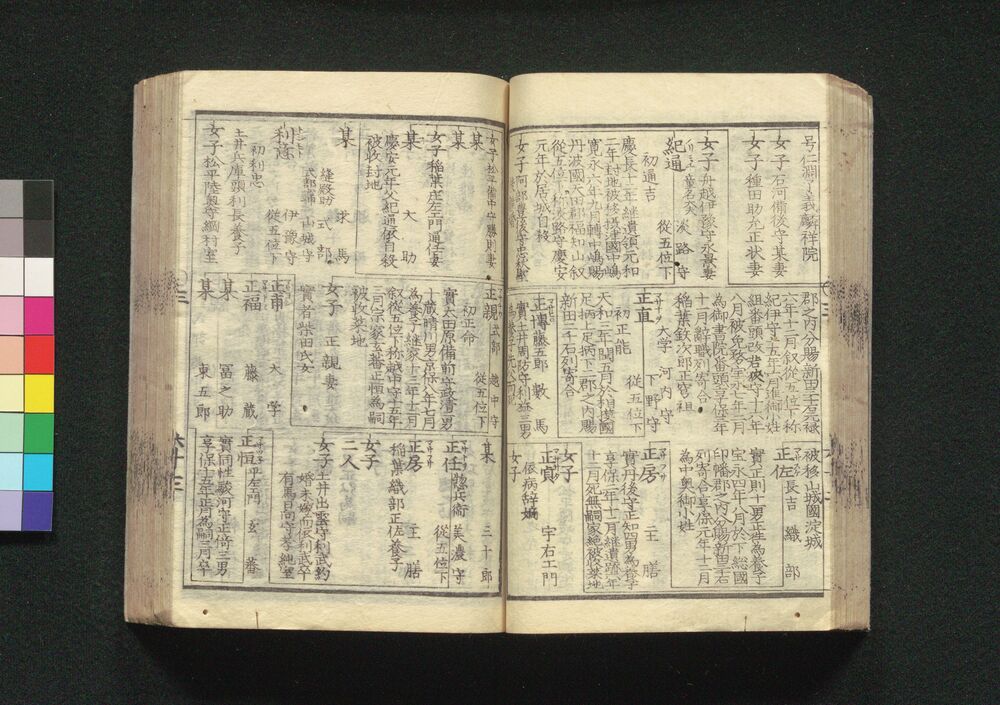 号仁淵了義麟祥院
女子 石河備後守某妻
女子 種田助九正状妻
女子 舟越伊豫守永景妻
紀通 童名 淡路守
初通吉 従五位下
慶長十二年継遺領元和
二年封地被移摂津國中嶋
寛永六年九月轉中嶋賜
丹波國天田郡福知山叙
従五位下称淡路守慶安
元年於居城自殺
女子 阿部豊後守忠秋
郡之内分賜新田三千石禄
六年十二月叙従五位下称
紀伊守十五年八月進御小姓
組番頭改若狭守十六年
八月被免移宝永七年二月
為御書院番頭享保五年
十月辞職列寄合
稲葉鉄次郎正富祖
正直 大学 河内守
下野守
初正能 従五位下
天和三年閏五月於相模國
足柄上足柄下二郡之内賜
新田二千石列寄合
正博 藤五郎 數馬
實土井周防守利益三男
被移山城國淀城
正佐 長吉 織部
實正則十男正往為養子
宝永四年八月於下総國
印幡郡之内分賜新田三千石
列寄合享保元年十二月
為中奥御小姓
正房 主膳
實丹後守正知四男為養子
享保二年十二月継遺跡三年
十二月死無嗣家絶被收菜地
正賓 宇右エ門
依病辞嫡
女子
女子
女子 松平備中守勝則妻
某
某
女子 稲葉庄左エ門通任妻
某 大助
慶安元年父紀通依自殺
被收封地
某 求馬
縫殿助 式部
利意 伊豫守
式部少輔 山城守
初利忠 従五位下
土井兵庫頭利長養子
女子 松平陸奥守綱村室
正親 式部 越中守
初正命 従五位下
實太田原備前守政清男
十蔵晴川男享保八年七月
為養子継家十三年十二月
叙従五位下称越中守十五年
同宗家玄番正恒為嗣
被收菜地
女子 正親妻
實者柴田氏女
正甫 大学
正福 藤蔵
某 冨之助
某 東五郎
某 三十郎
正任 惣兵衛 美濃守
従五位下
正房 主膳
稲葉織部正佐養子
女子
二人
女子 土井出雲守利武約
婚未嫁而依利武卒
有馬日向守孝純室
正恒 平左エ門 玄番
實同姓駿河守正倚三男
享保十五年正月為嗣三月卒